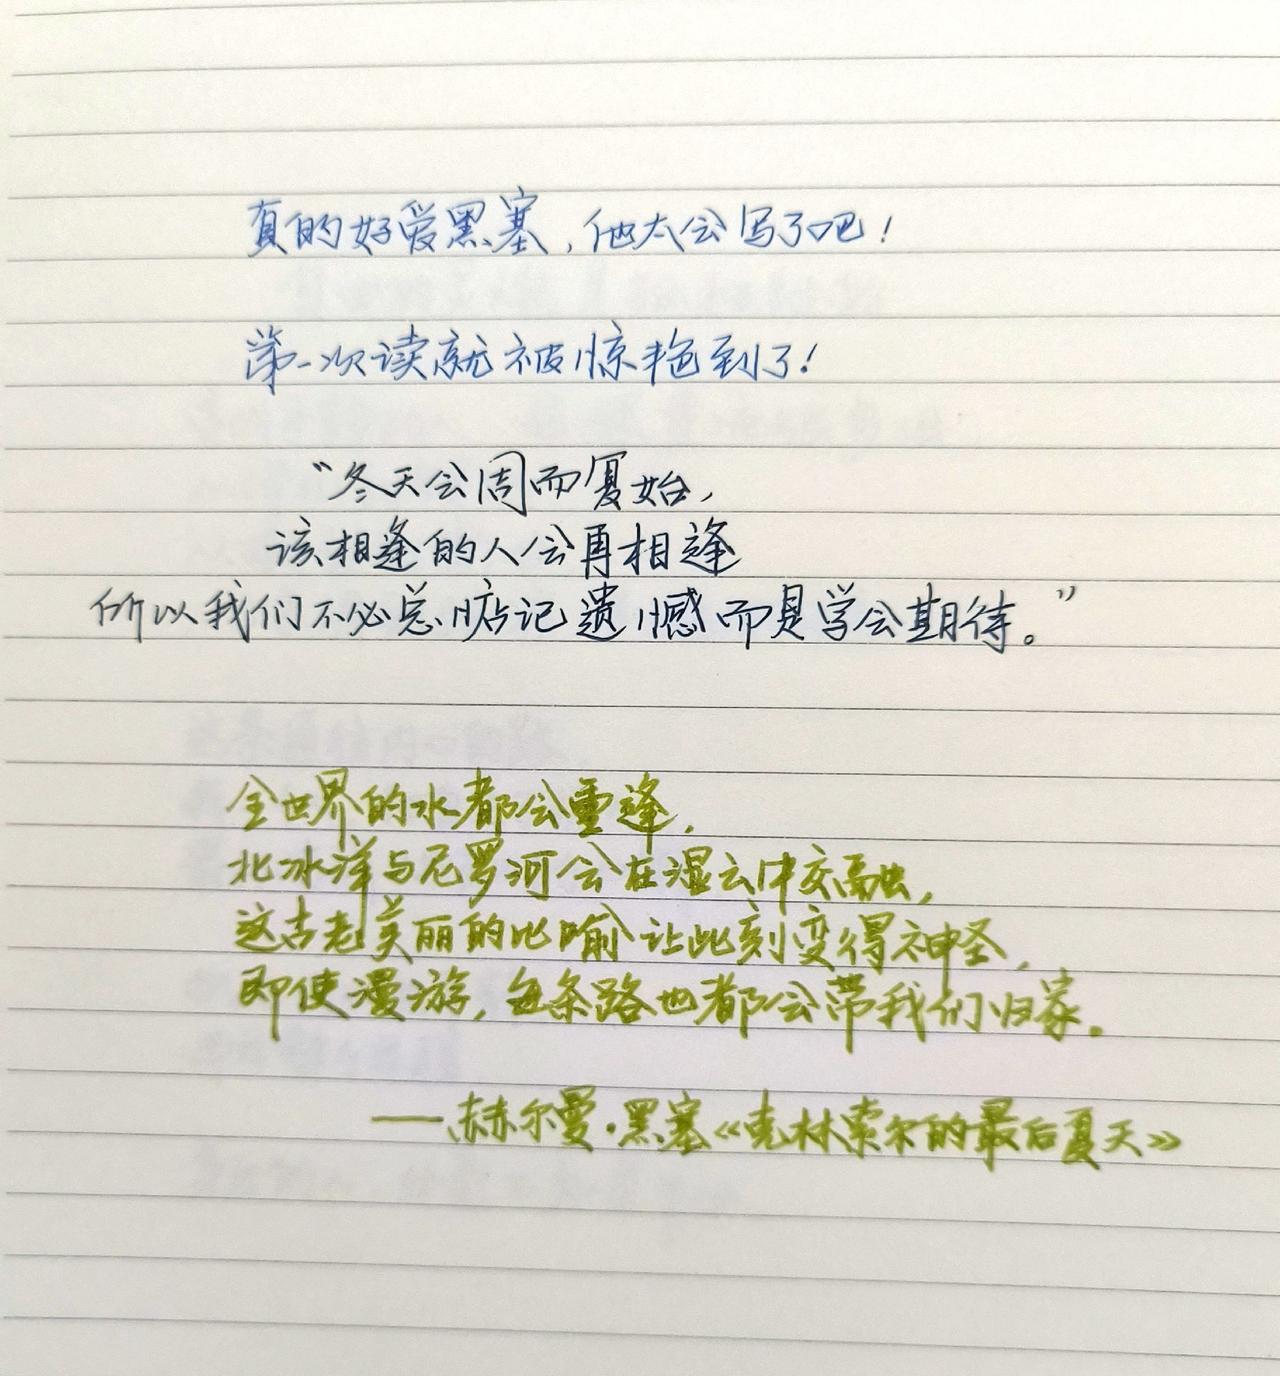 真的好爱黑塞，他太会写了吧！
第一次读就被惊艳到了！
“冬天会周而复始，
该相逢的人会再相逢
所以我们不必总惦记遗憾而是学会期待。”
全世界的水都会重逢，
北冰洋与尼罗河会在湿云中交融，
这古老美丽的比喻让此刻变得神圣，
即使漫游，每条路也都会带我们归家。
——赫尔曼·黑塞《克林索尔的最后夏天》